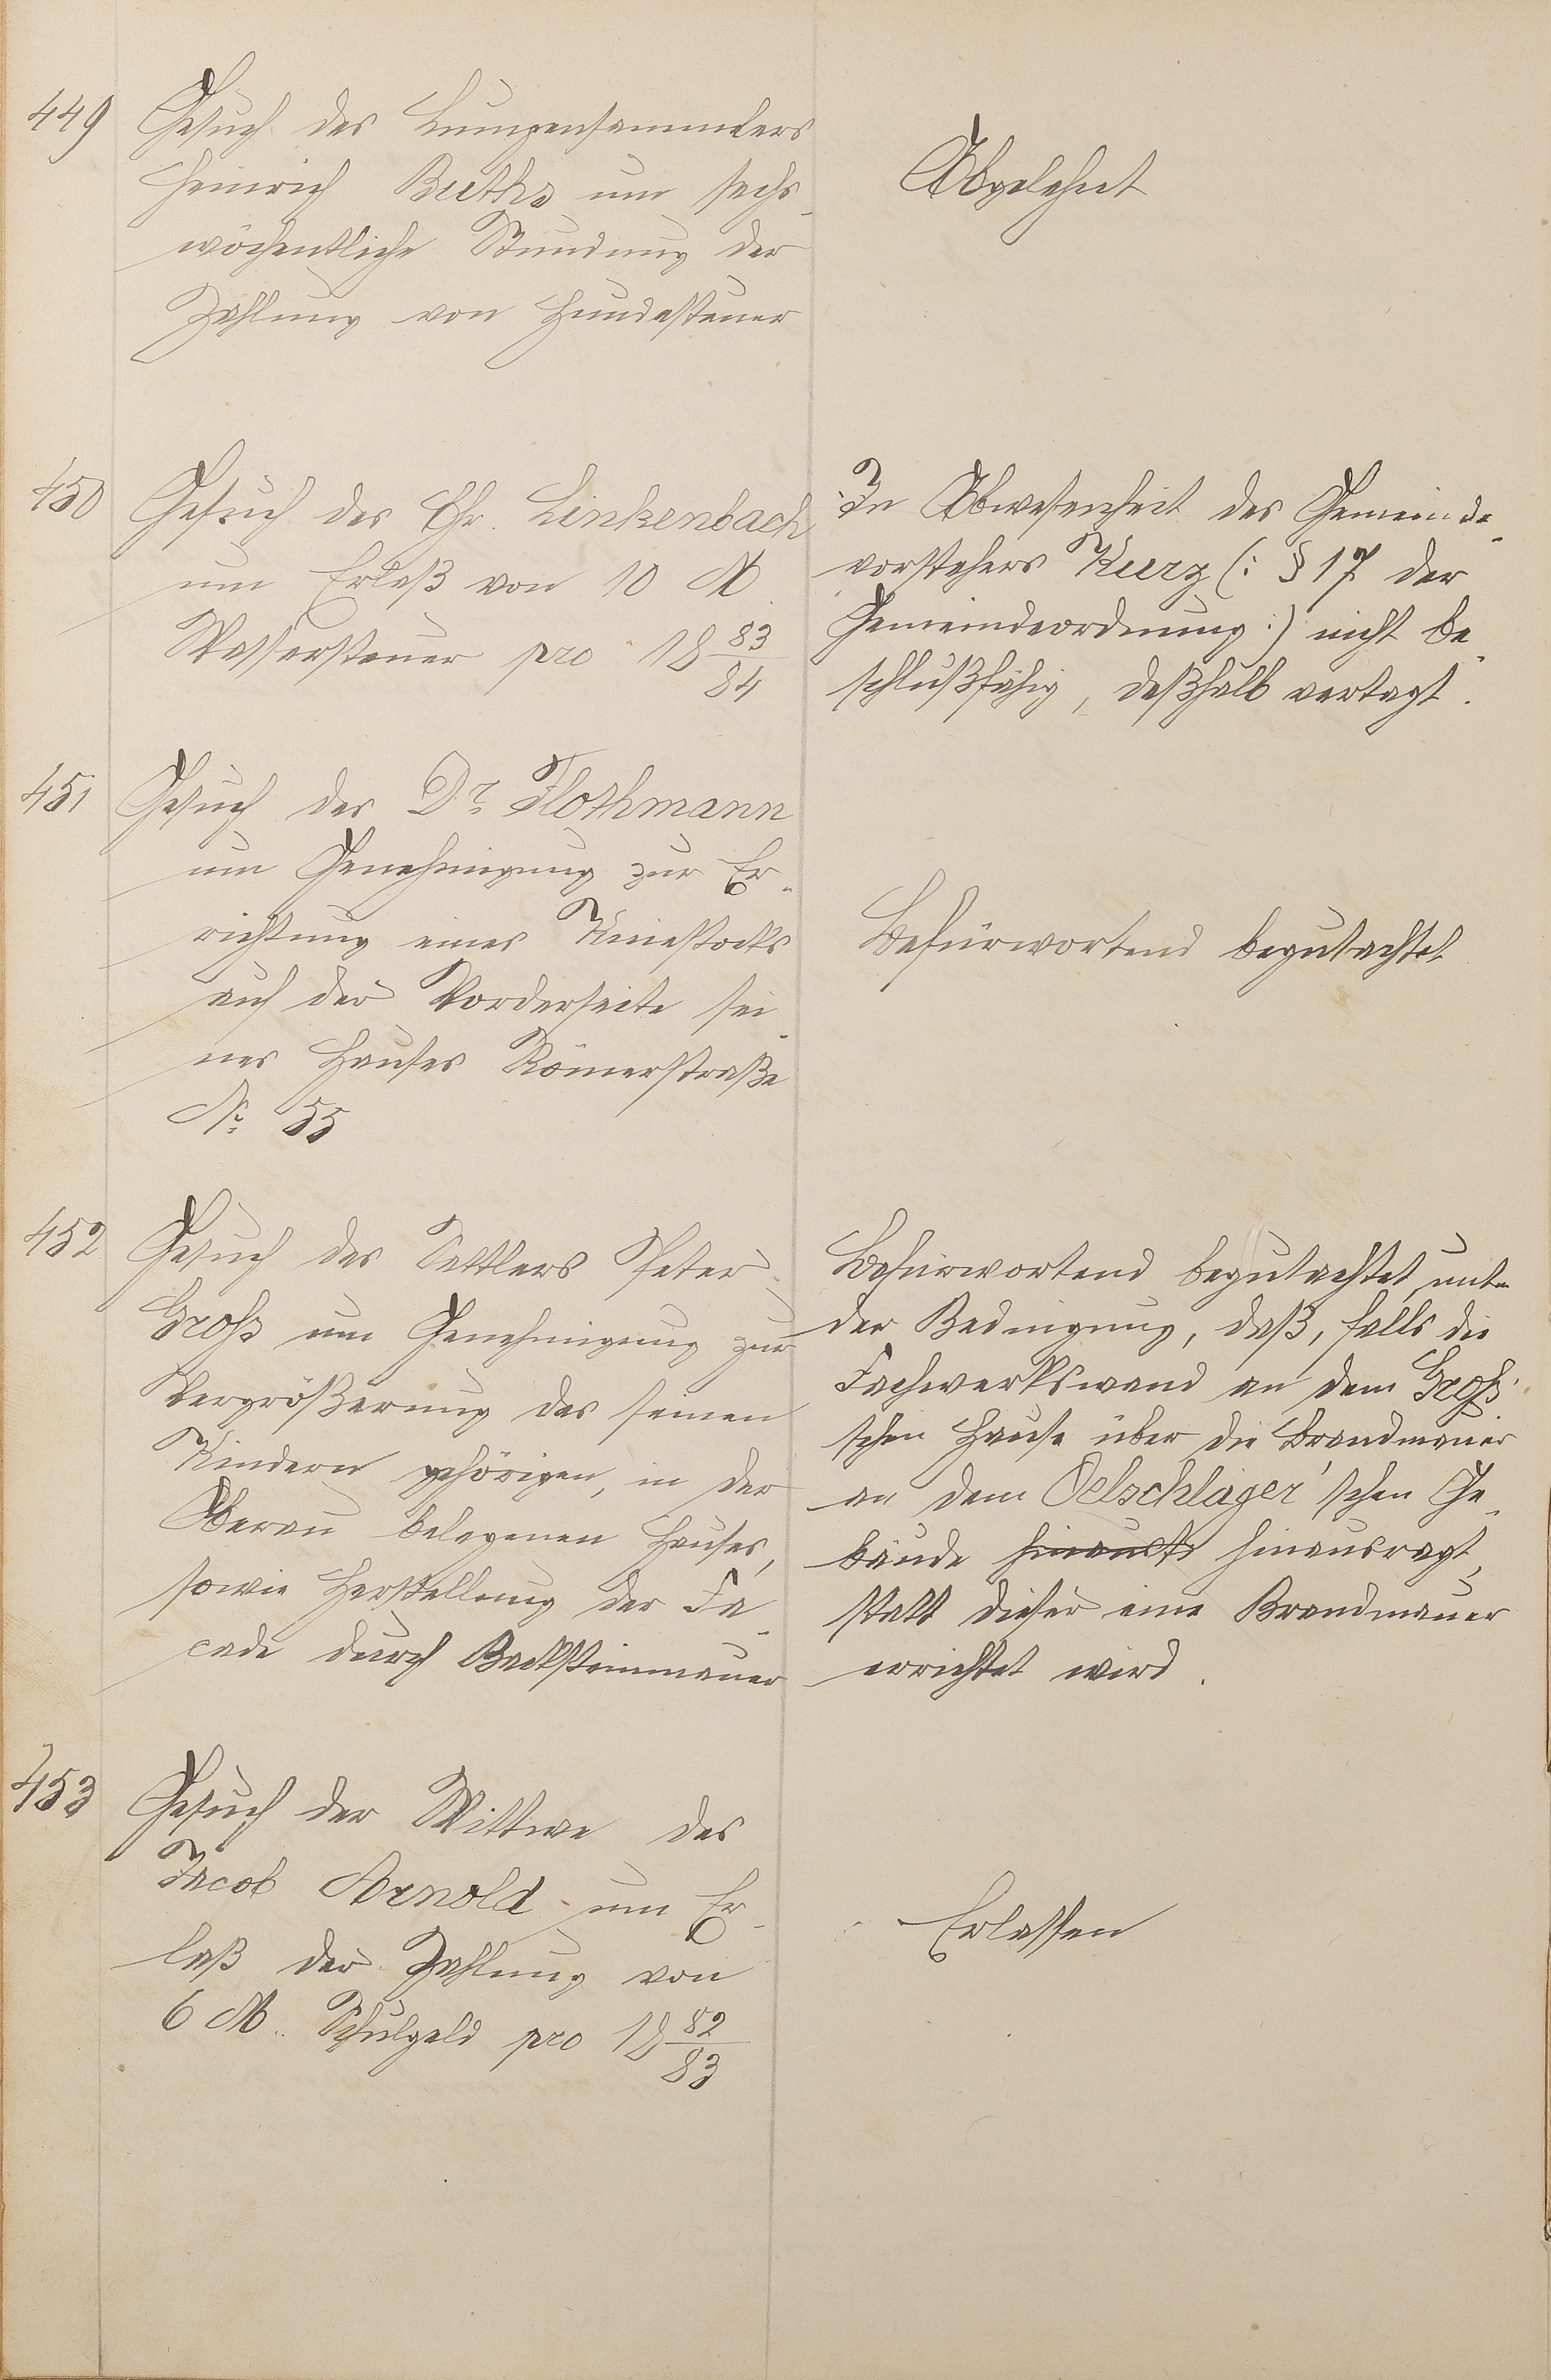 449
Gesuch des Lumpensammlers
Heinrich Buths um sechs-
wöchentliche Stundung der
Zahlung von Hundesteuer
Abgelehnt
450
Gesuch des Chr. Linkenbach
um Erlaß von 10 M.
Wassersteuer pro 18 83/84
In Abwesenheit des Gemeinde-
vorstehers Kurz (: § 17 der
Gemeindeordnung :) nicht be-
schlußfähig, deßhalb vertagt.
451
Gesuch des Dr. Flothmann
um Genehmigung zur Er-
richtung eines Kniestocks
auf der Vorderseite sei-
nes Hauses Römerstraße
No. 55
Befürwortend begutachtet
452
Gesuch des Sattlers Peter
Groß um Genehmigung zur
Vergrößerung des seinen
Kindern gehörigen, in der
Oberau belegenen Hauses,
sowie Herstellung der Fa-
cade durch Backsteinmauer
Befürwortend begutachtet unter
der Bedingung, daß, falls die
Fachwerkswand an dem Groß'
schen Hause über die Brandmauer
an dem Oelschläger'schen Ge-
bäude hinausragt,
statt dieser eine Brandmauer
errichtet wird.
453
Gesuch der Wittwe des
Jacob Arnold um Er-
laß der Zahlung von
6 M. Schulgeld pro 18 82/83
Erlassen